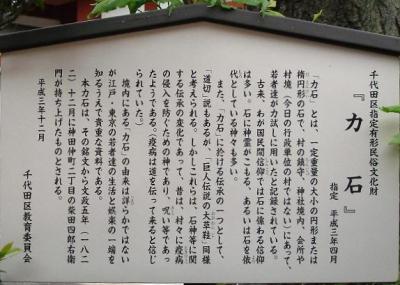 千代田区指定有形民俗文化財
『力石』
指定 平成三年四月
「力石」とは、一定重量の大小の円形または
楕円形の石で、村の鎮守、神社境内、会所や
村境(今日の行政単位の村ではない)にあって、
若者達が力試しに用いたと記録されている。
古来、わが国民間信仰では石に係わる信仰
は多い。石に神霊がこもる、あるいは石を依
代としている神々も多い。
また、「力石」に於ける伝承の一つとして、
「道切」説もあるが、「巨人伝説の大草鞋」同様
と考えられる。しかしこれらは、石神等に関
する伝承の変化であって、昔は、村々に疫病
の侵入を防ぐための神であり、呪い等であっ
たようである。(疫病は道を伝って来ると信じ
られていた)。
境内にある「力石」の由来は詳らかではない
が江戸・東京の若者達の生活と娯楽の一端を
知るうえで貴重な資料である。
本力石は、その銘文から文政五年(一八二
二)十二月に神田仲町二丁目の柴田四郎右衛
門が持ち上げたものとされる。
平成三年十二月
千代田区教育委員会